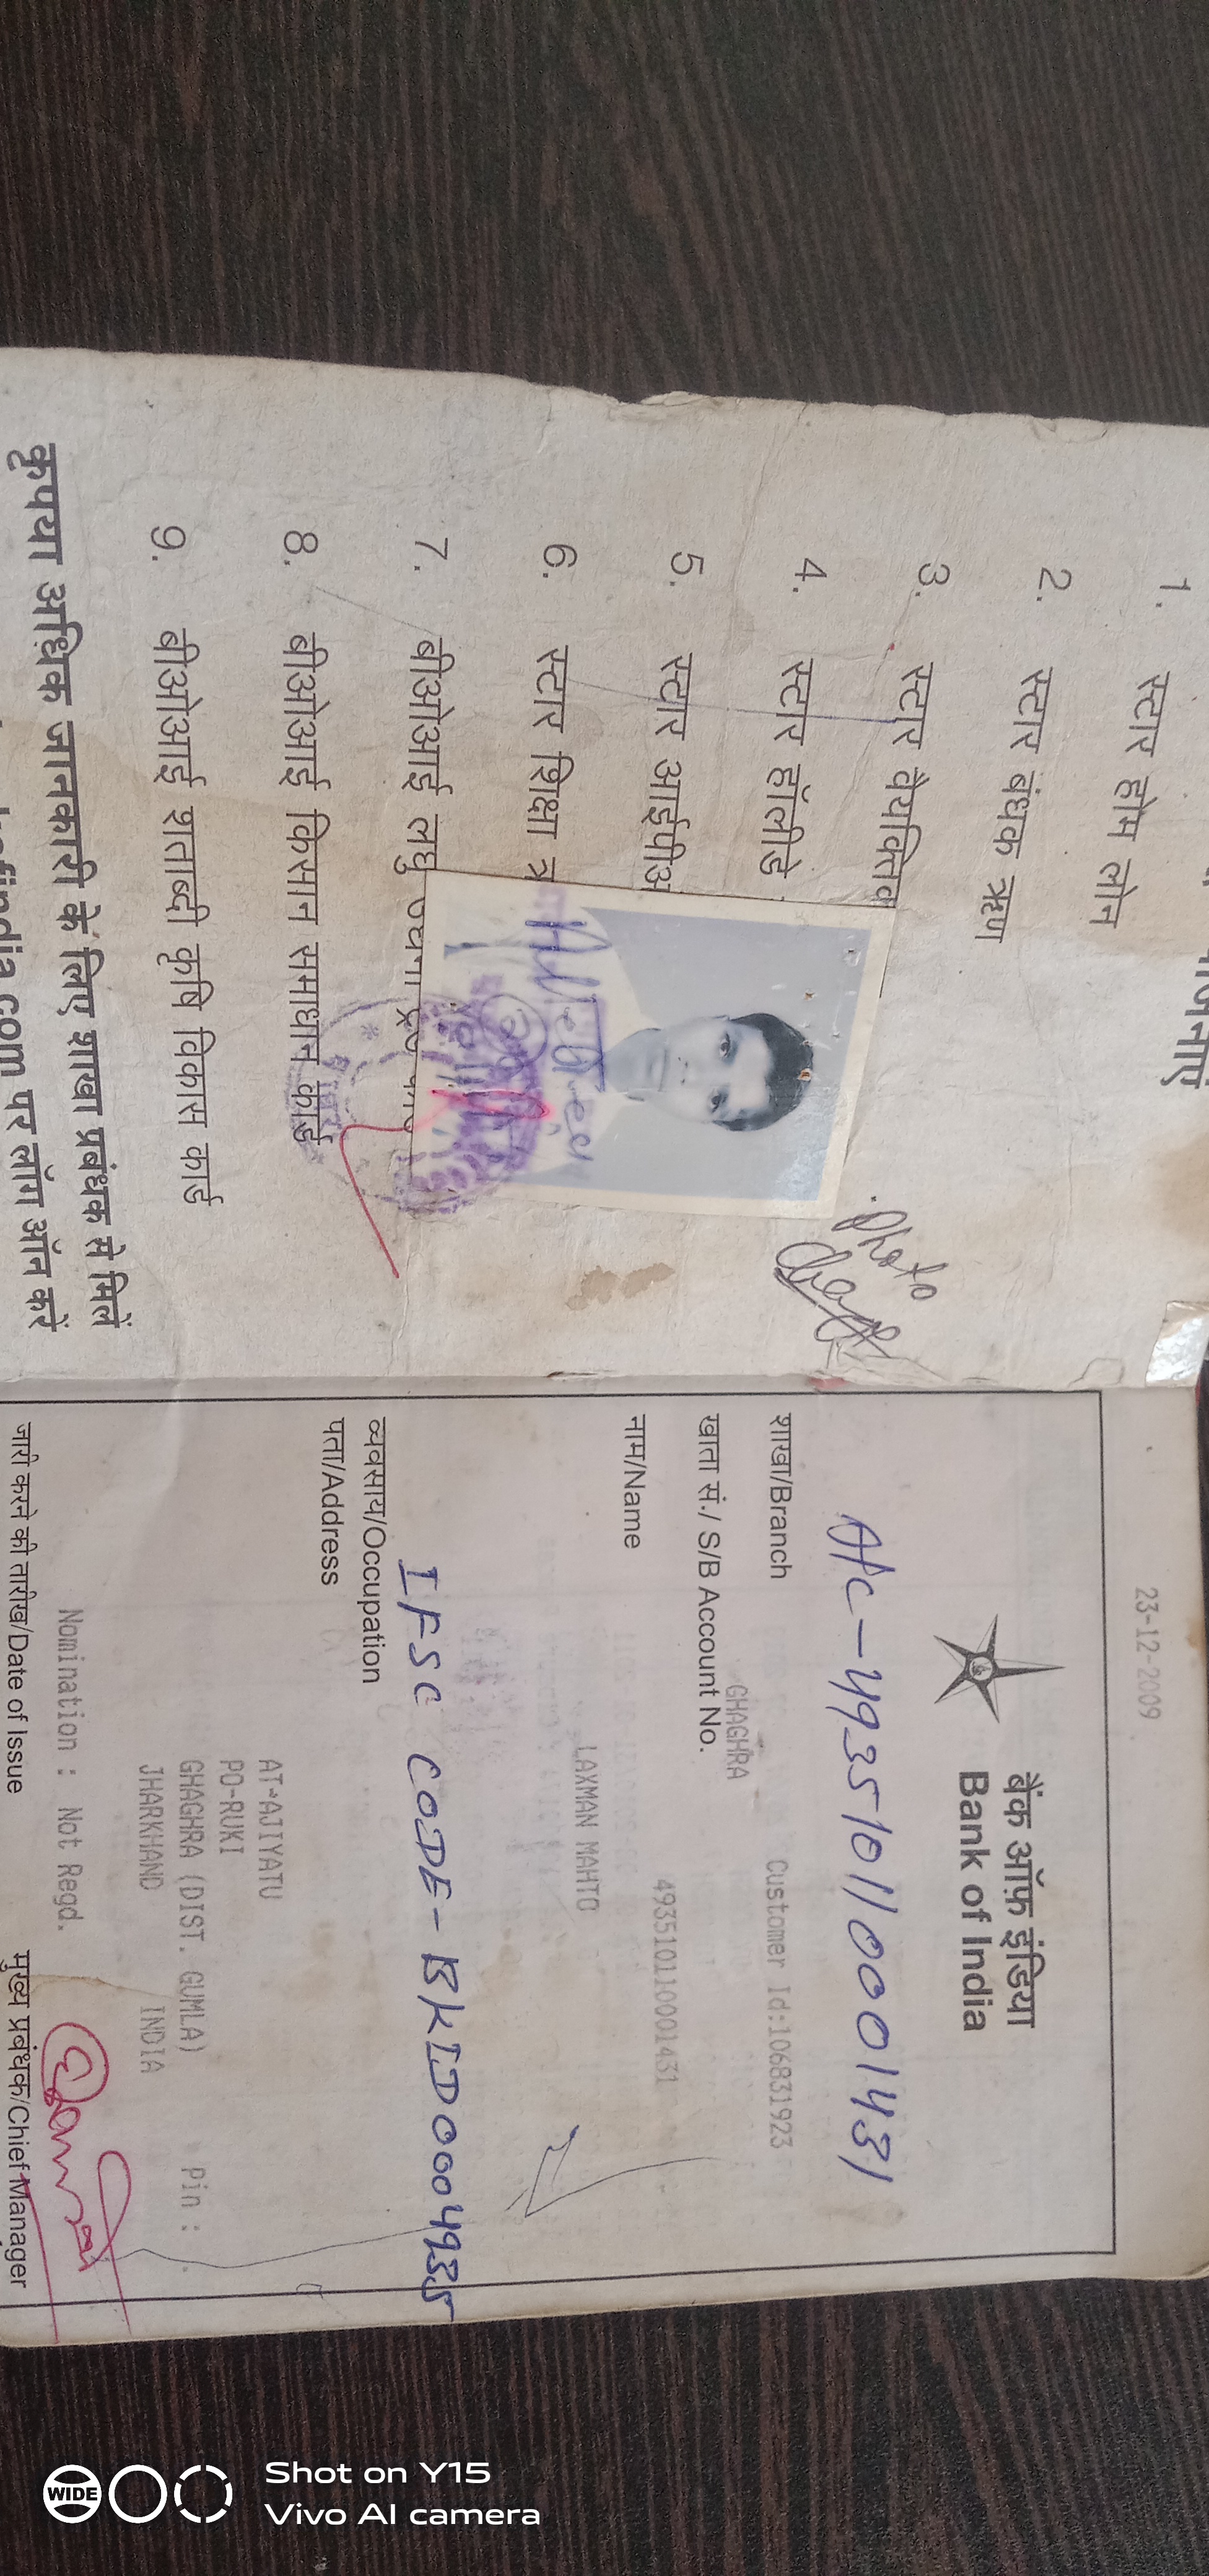 1. स्टार होम लोन
2. स्टार बंधक ऋण
3. स्टार वैयक्तिक
4. स्टार हॉलीडे
5. स्टार आईपीअ
6. स्टार शिक्षा ऋ
7. बीओआई लघु
8. बीओआई किसान समाधान कार्ड
9. बीओआई शताब्दी कृषि विकास कार्ड
कृपया अधिक जानकारी के लिए शाखा प्रबंधक से मिलें
पर लॉग ऑन करें
Photo
23-12-2009
बैंक ऑफ़ इंडिया
Bank of India
A/c-493510110001431
शाखा/Branch
Customer Id:106831923
GHAGHRA
खाता सं./ S/B Account No.
493510110001431
नाम/Name
LAXMAN MAHTO
IFSC CODE-BKID0004935
व्यवसाय/Occupation
पता/Address
AT-AJIYATU
PO-RUKI
GHAGHRA (DIST. GUMLA) Pin :
JHARKHAND INDIA
Nomination : Not Regd.
जारी करने की तारीख/Date of Issue मुख्य प्रबंधक/Chief Manager
WIDE
Shot on Y15
Vivo AI camera